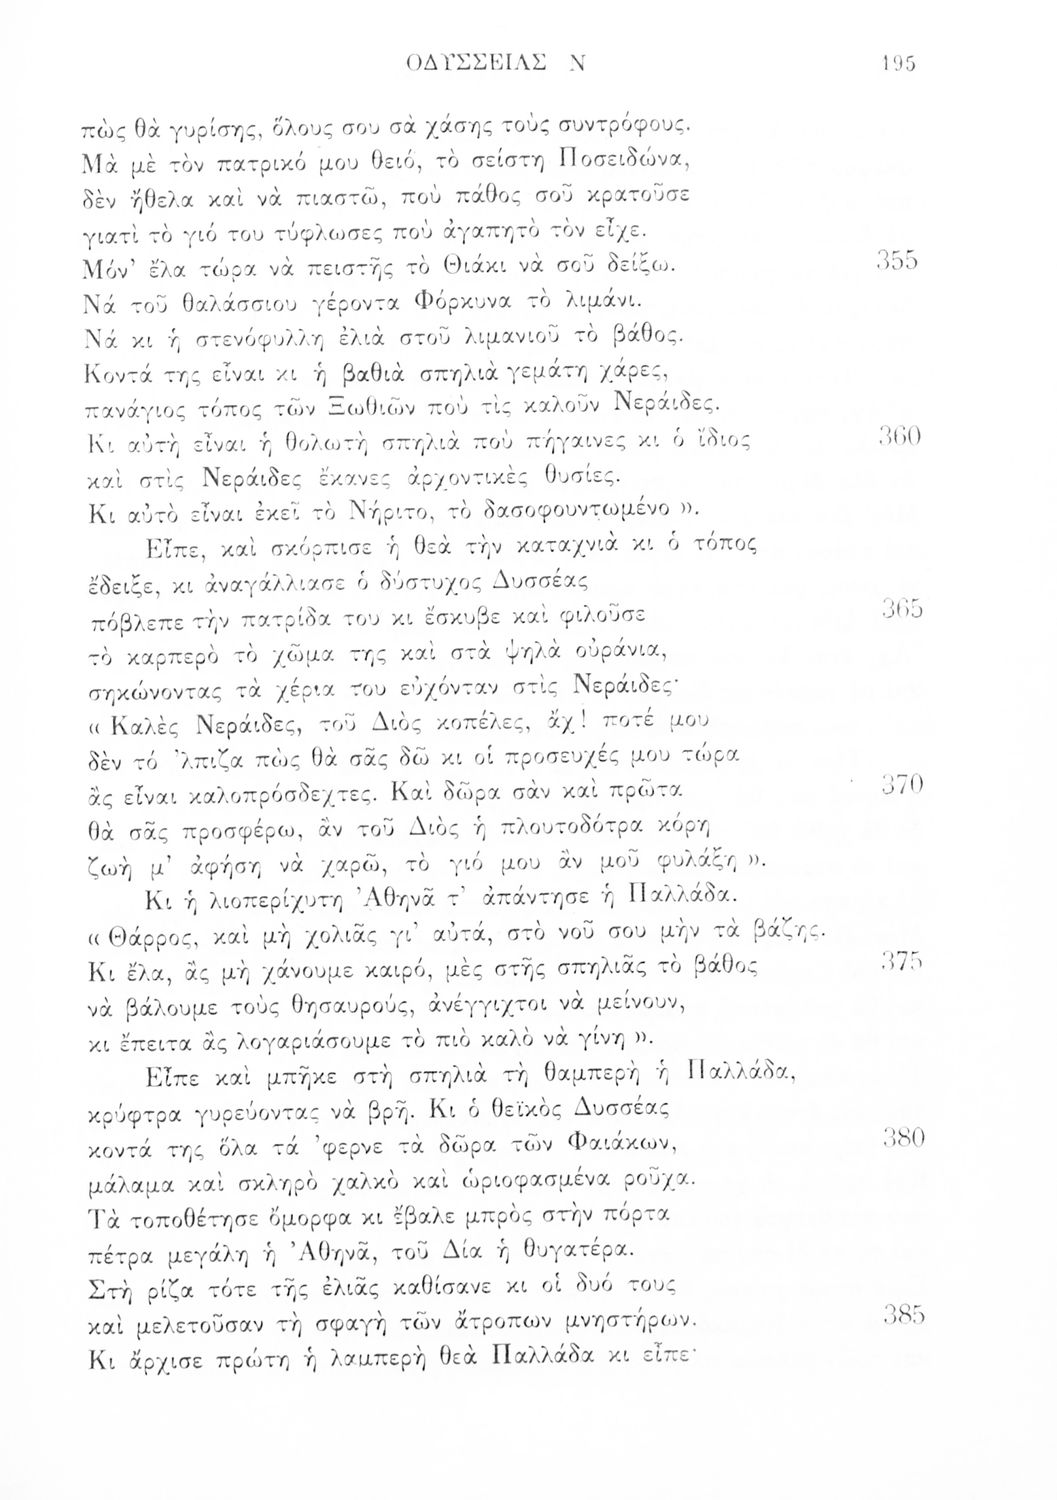 ΟΔΥΣΣΕΙΑΣ Ν 195
πὼς θὰ γυρίσης, ὅλους σου σὰ χάσης τοὺς συντρόφους.
Μὰ μὲ τὸν πατρικό μου θειό, τὸ σείστη Ποσειδώνα,
δὲν ἤθελα καὶ νὰ πιαστῶ, ποὺ πάθος σοῦ κρατοῦσε
γιατὶ τὸ γιό του τύφλωσες ποὺ ἀγαπητὸ τὸν εἶχε.
Μόν' ἔλα τώρα νὰ πειστῆς τὸ Θιάκι νὰ σοῦ δείξω. 355
Νά τοῦ θαλάσσιου γέροντα Φόρκυνα τὸ λιμάνι.
Νά κι ἡ στενόφυλλη ἐλιὰ στοῦ λιμανιοῦ τὸ βάθος.
Κοντά της εἶναι κι ἡ βαθιὰ σπηλιὰ γεμάτη χάρες,
πανάγιος τόπος τῶν Ξωθιῶν ποὺ τὶς καλοῦν Νεράιδες.
Κι αὐτὴ εἶναι ἡ θολωτὴ σπηλιὰ ποὺ πήγαινες κι ὁ ἴδιος 360
καὶ στὶς Νεράιδες ἔκανες ἀρχοντικὲς θυσίες.
Κι αὐτὸ εἶναι ἐκεῖ τὸ Νήριτο, τὸ δασοφουντωμένο ».
Εἶπε, καὶ σκόρπισε ἡ θεὰ τὴν καταχνιὰ κι ὁ τόπος
ἔδειξε, κι ἀναγάλλιασε ὁ δύστυχος Δυσσέας
πόβλεπε τὴν πατρίδα του κι ἔσκυβε καὶ φιλοῦσε 365
τὸ καρπερὸ τὸ χῶμα της καὶ στὰ ψηλὰ οὐράνια,
σηκώνοντας τὰ χέρια του εὐχόνταν στὶς Νεράιδες·
« Καλὲς Νεράιδες, τοῦ Διὸς κοπέλες, ἄχ! ποτέ μου
δὲν τό 'λπιζα πὼς θὰ σᾶς δῶ κι οἱ προσευχές μου τώρα
ἂς εἶναι καλοπρόσδεχτες. Καὶ δῶρα σὰν καὶ πρῶτα 370
θὰ σᾶς προσφέρω, ἂν τοῦ Διὸς ἡ πλουτοδότρα κόρη
ζωὴ μ' ἀφήση νὰ χαρῶ, τὸ γιό μου ἂν μοῦ φυλάξη ».
Κι ἡ λιοπερίχυτη Ἀθηνᾶ τ' ἀπάντησε ἡ Παλλάδα.
« Θάρρος, καὶ μὴ χολιᾶς γι' αὐτά, στὸ νοῦ σου μὴν τὰ βάζης.
Κι ἔλα, ἂς μὴ χάνουμε καιρό, μὲς στῆς σπηλιᾶς τὸ βάθος 375
νὰ βάλουμε τοὺς θησαυρούς, ἀνέγγιχτοι νὰ μείνουν,
κι ἔπειτα ἂς λογαριάσουμε τὸ πιὸ καλὸ νὰ γίνη ».
Εἶπε καὶ μπῆκε στὴ σπηλιὰ τὴ θαμπερὴ ἡ Παλλάδα,
κρύφτρα γυρεύοντας νὰ βρῆ. Κι ὁ θεϊκὸς Δυσσέας
κοντά της ὅλα τά 'φερνε τὰ δῶρα τῶν Φαιάκων, 380
μάλαμα καὶ σκληρὸ χαλκὸ καὶ ὡριοφασμένα ροῦχα.
Τὰ τοποθέτησε ὄμορφα κι ἔβαλε μπρὸς στὴν πόρτα
πέτρα μεγάλη ἡ Ἀθηνᾶ, τοῦ Δία ἡ θυγατέρα.
Στὴ ρίζα τότε τῆς ἐλιᾶς καθίσανε κι οἱ δυό τους
καὶ μελετοῦσαν τὴ σφαγὴ τῶν ἄτροπων μνηστήρων. 385
Κι ἄρχισε πρώτη ἡ λαμπερὴ θεὰ Παλλάδα κι εἶπε·